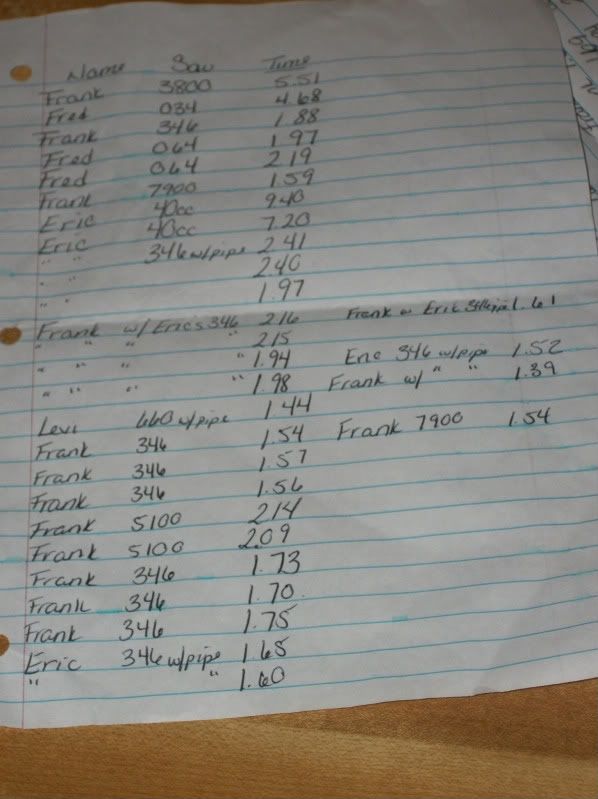 Name Saw Time
Frank 3800 5.51
Fred 034 4.68
Frank 346 1.88
Fred 064 1.97
Fred 064 2.19
Frank 7900 1.59
Eric 40cc 9.40
Eric 40cc 7.20
" " 346 w/pipe 2.41
" " 2.40
" " 1.97
Frank w/ Erics 346 2.16 Frank w Eric 346 pipe 1.61
" " " " 2.15
" " " " 1.94 Eric 346 w/pipe 1.52
" " " " 1.98 Frank w/ " " 1.39
Levi 660 w/pipe 1.44
Frank 346 1.54 Frank 7900 1.54
Frank 346 1.57
Frank 346 1.56
Frank 5100 2.14
Frank 5100 2.09
Frank 346 1.73
Frank 346 1.70
Frank 346 1.75
Eric 346 w/pipe 1.65
" " 1.60